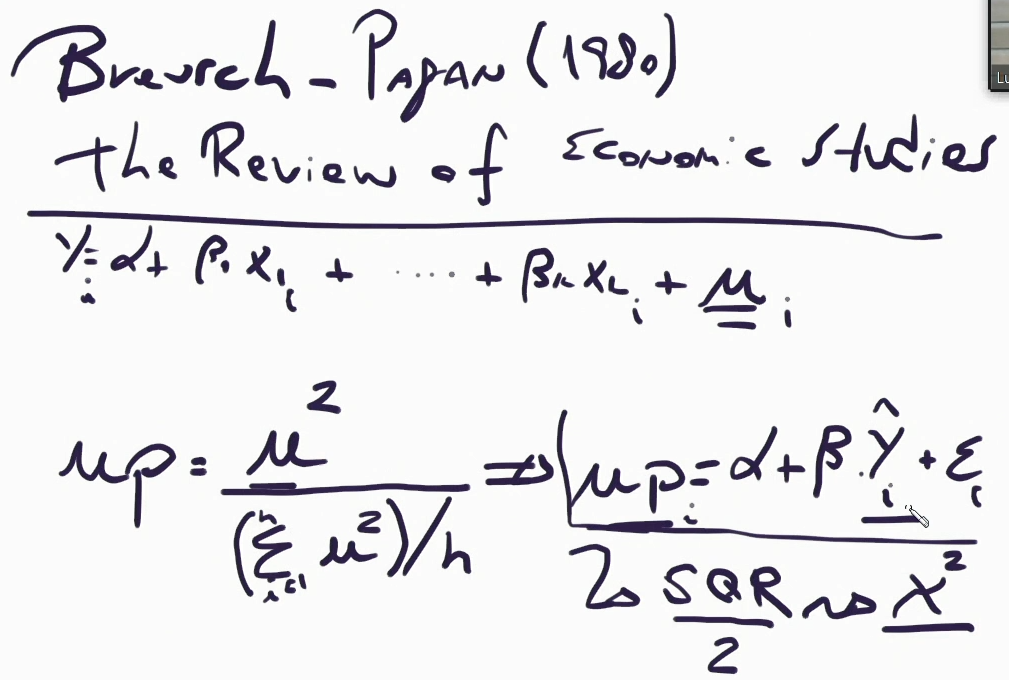 Breusch - PAGAN (1980)
the Review of Economic Studies
Y_i = α + β_1 X_1i + ..... + β_k X_k i + μ_i
μp = μ² / (Σ_{i=1}^{n} μ²)/n ⇒ μp_i = α + β.Ŷ_i + ε_i
SQR/2 ~> X²
Lu